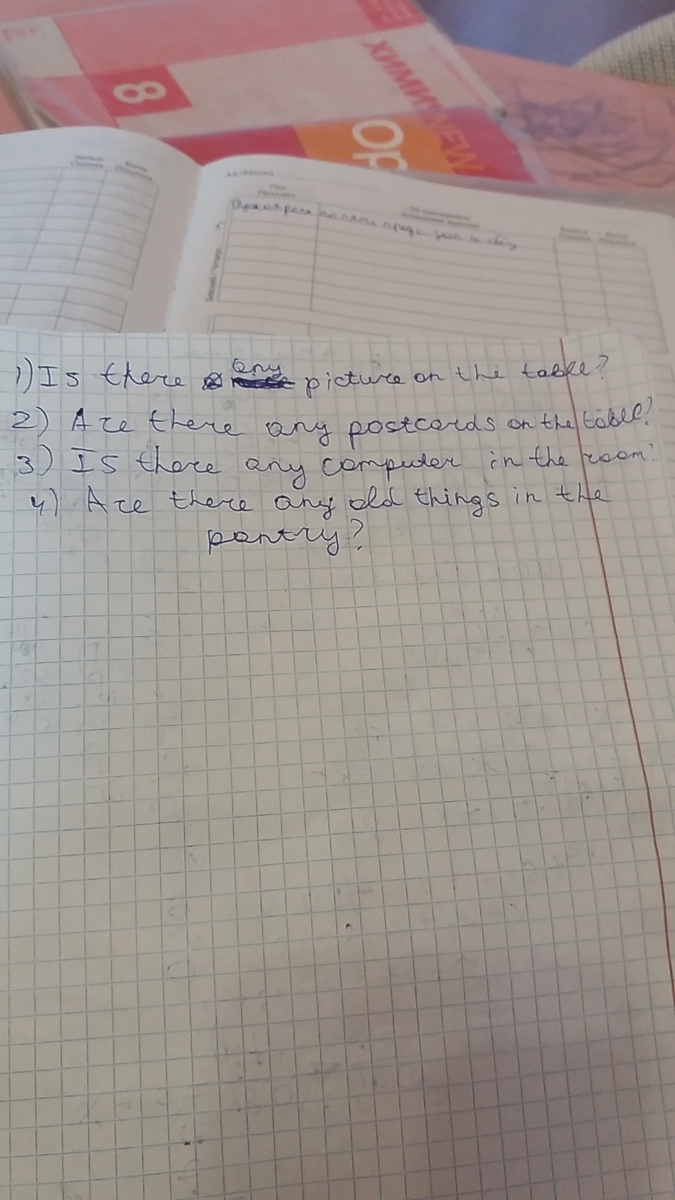 8
ХИМИИ
NEW
Op
1) Is there any picture on the table?
2) Are there any postcards on the table?
3) Is there any computer in the room?
4) Are there any old things in the
pantry?